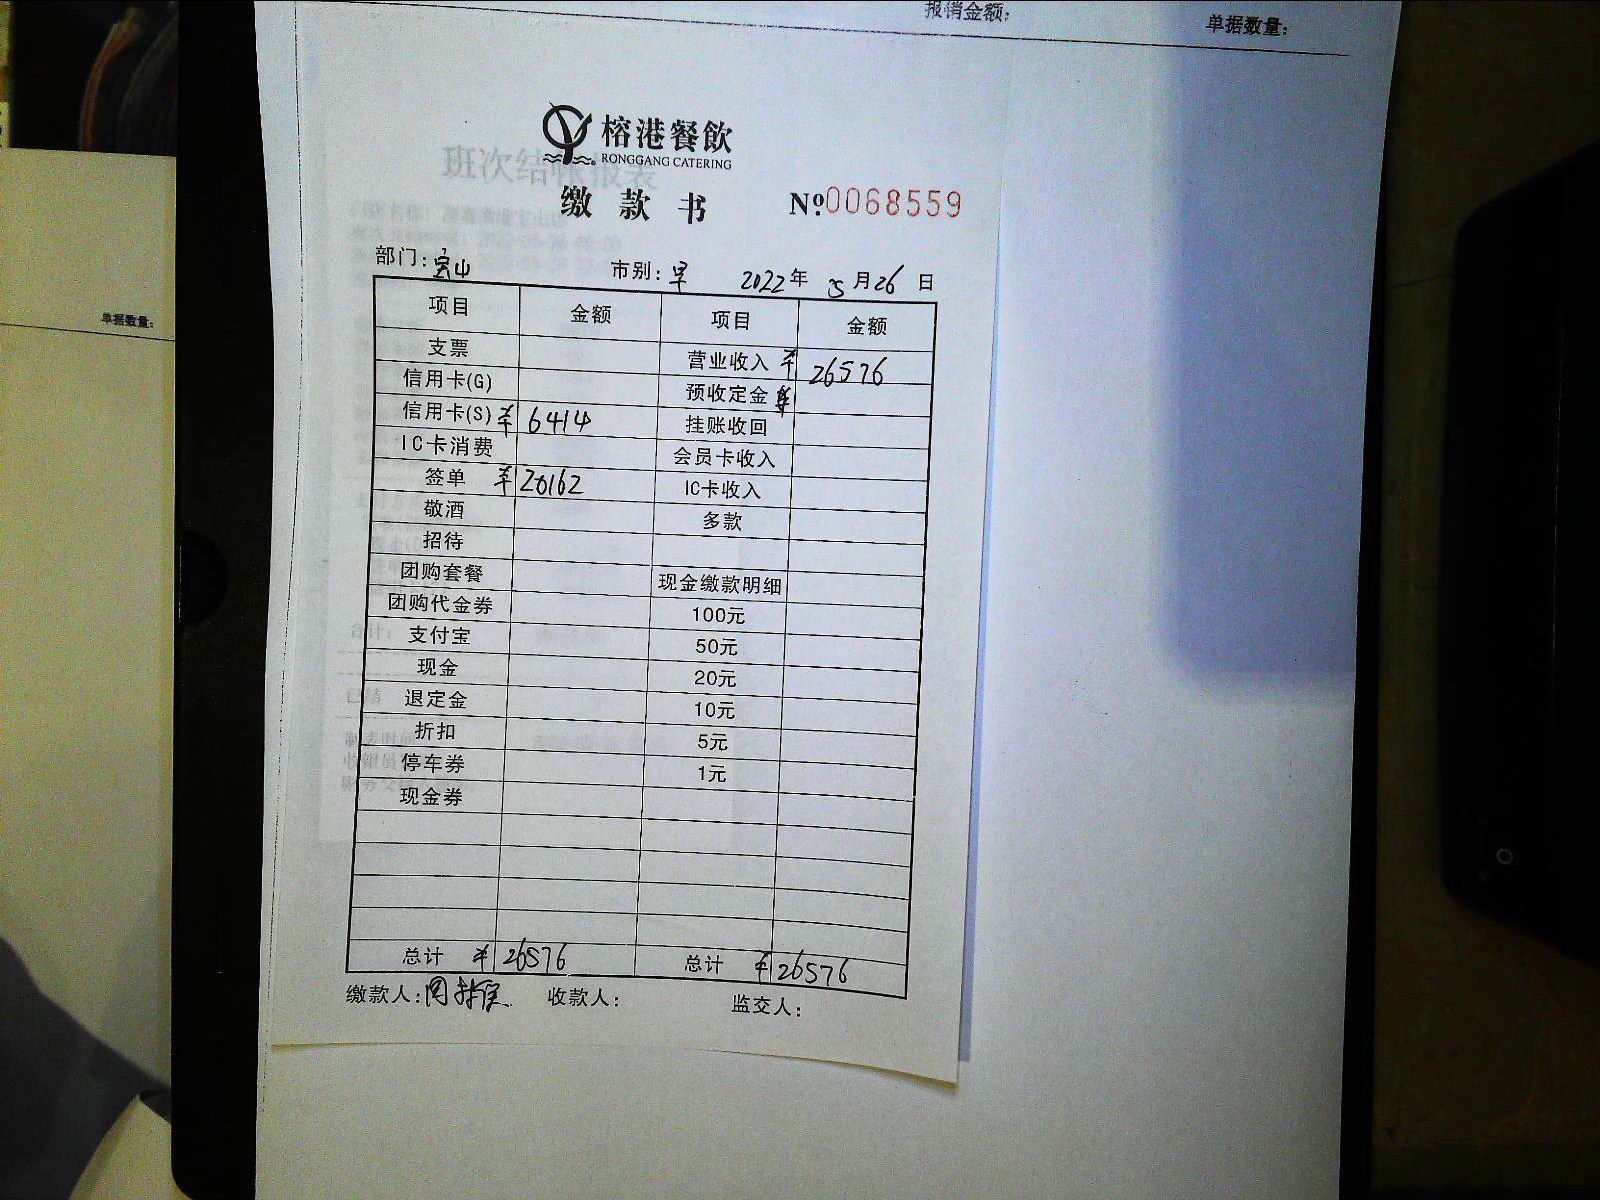 报销金额:
单据数量:
单据数量:
榕港餐飲
RONGGANG CATERING
班次结帐报表
缴款书 №0068559
部门:宝山 市别:早 2022年 5月26日
项目 金额 项目 金额
支票 营业收入 ¥26576
信用卡(G) 预收定金
信用卡(S) ¥6414 挂账收回
IC卡消费 会员卡收入
签单 ¥20162 IC卡收入
敬酒 多款
招待
团购套餐 现金缴款明细
团购代金券 100元
支付宝 50元
现金 20元
退定金 10元
折扣 5元
停车券 1元
现金券
总计 ¥26576 总计 ¥26576
缴款人: 收款人: 监交人: